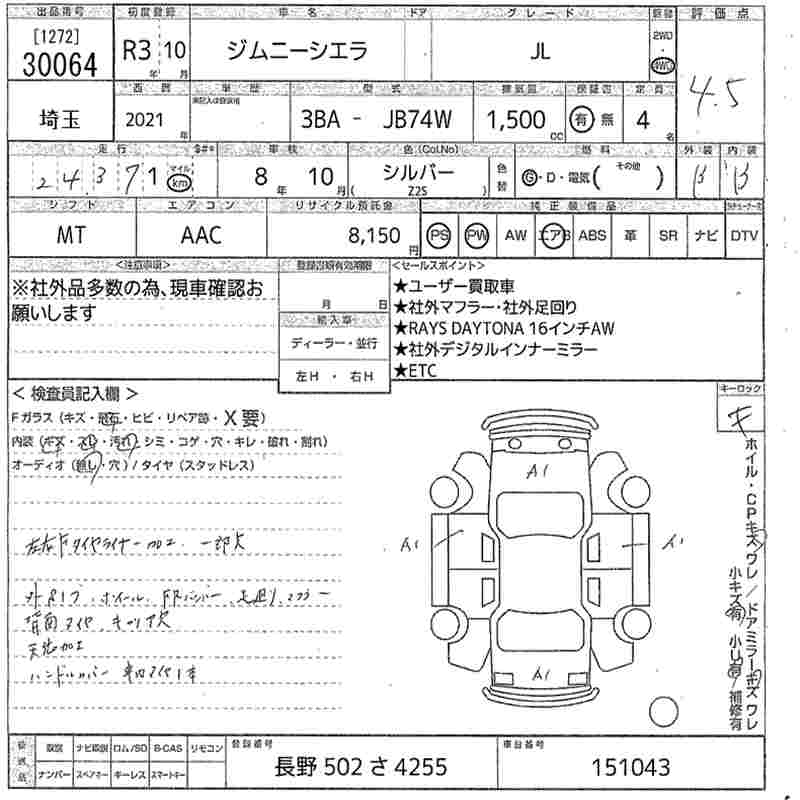 出品番号 初度登録 車名 ドア グレード 駆動 評価点
[1272]
30064 R3 10 年 月 ジムニーシエラ JL 2WD 4WD 4.5
西暦 車歴 型式 排気量 保証書 定員
埼玉 2021 年 3BA - JB74W 1,500 CC 有 無 4 名
走行 車検 色(Col.No) 燃料 外装 内装
2 4 3 7 1 マイル km 8 年 10 月 シルバー ( Z2S ) 色替 G・D・電気( その他 ) B B
シフト エアコン リサイクル預託金 純正装備品
MT AAC 8,150 円 PS PW AW エアB ABS 革 SR ナビ DTV
<注意事項> 登録書類有効期限 <セールスポイント>
※社外品多数の為、現車確認お
願いします
月 日
輸入車
ディーラー・並行
左H ・ 右H
★ユーザー買取車
★社外マフラー・社外足回り
★RAYS DAYTONA 16インチAW
★社外デジタルインナーミラー
★ETC
< 検査員記入欄 > キーロック
Fガラス (キズ・飛石・ヒビ・リペア跡・X要)
内装 (キズ・スレ・汚れ・シミ・コゲ・穴・キレ・破れ・割れ)
オーディオ (無し・穴) / タイヤ (スタッドレス)
キ
左右Fタイヤライナー加工、一部欠
背面タイヤ、キャリア欠
天張加工
ハンドルカバー 車内タイヤ1本
A1
A1
A1
A1
ホイル・CPキズワレ / ドアミラーキズワレ
小キズ有 小凹有 補修有
取説 ナビ取説 ロム/SD B-CAS リモコン 登録番号 車台番号
ナンバー スペアキー キーレス スマートキー 長野 502 さ 4255 151043